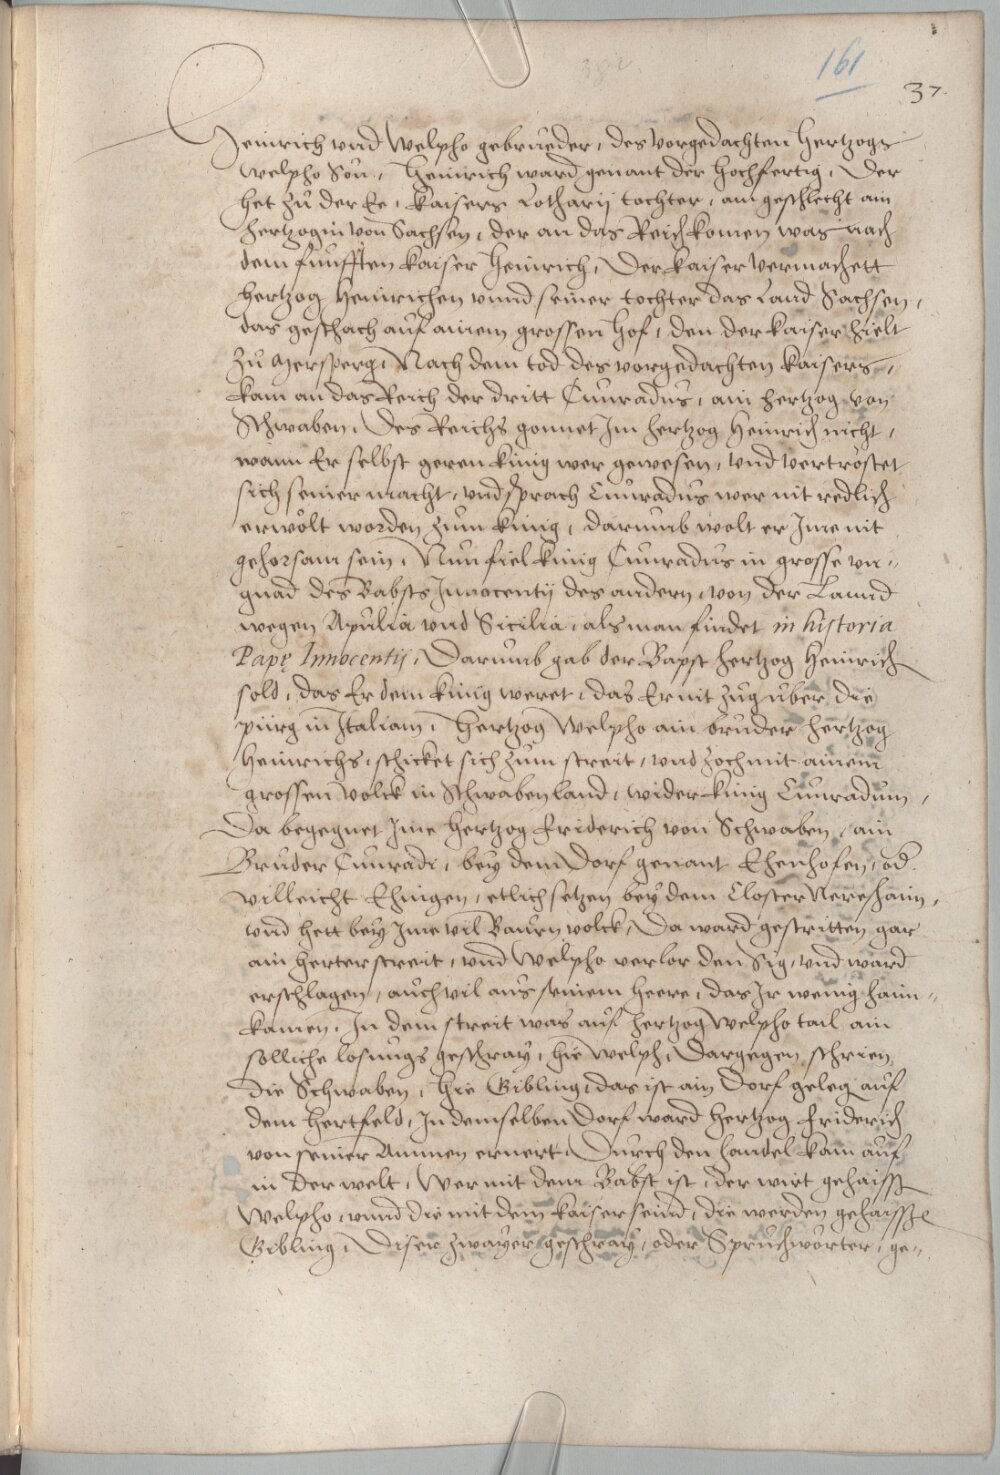 161
37.
Heinrich vnd Welpho gebrueder, des vorgedachten Hertzogs
Welpho Son, Heinrich ward genant der Hochfertig, Der
het zu der Ee, Kaisers Lotharij tochter, am geschlecht ain
Hertzogin von Sachsen, der an das Reich komen was nach
dem funfften Kaiser Heinrich, Der Kaiser vermachett
Hertzog Heinrichen vnnd seiner tochter das Land Sachsen,
das geschach auf ainem grossen Hof, den der Kaiser hielt
zu Merspergg, Nach dem tod des vorgedachten Kaisers,
kam an das Reich der dritt Cunradus, ain Hertzog von
Schwaben, Des Reichs gonnet Im Hertzog Heinrich nicht,
wann Er selbst geren Kinig wer gewesen, vnd vertröstet
sich seiner macht, vnd sprach Cunradus wer nit redlich
erwölt worden zum Kinig, darumb wolt er Ime nit
gehorsam sein, Nun fiel Kinig Cunradus in grosse vn-
gnad des Babsts Innocentij des andern, von der Lannd
wegen Apulia vnd Sicilia, als man findet in historia
Papę Innocentij, Darumb gab der Bapst Hertzog Heinrich
sold, das Er dem Kinig weret, das Er nit zug über die
pürg in Italiam, Hertzog Welpho ain bruder Hertzog
Heinrichs, schicket sich zum streit, vnd zoch mit ainem
grossen volck in Schwabenland, wider Kinig Cunradum,
Da begegnet Ime Hertzog Friderich von Schwaben, ain
Bruder Cunradi, bey dem Dorf genant Ehenhofen, od.
villeicht Ehingen, etlich setzen bey dem Closter Nereshaim,
vnd hett bey Ime vil Baurn volck, Da ward gestritten gar
ain herter streit, vnd Welpho verlor den Sig, vnd ward
erschlagen, auch vil aus seinem Heere, das Ir wenig haim-
kamen, In dem streit was auf Hertzog Welpho tail ain
solliche losungs geschray, Hie Welph, Dargegen schrien
die Schwaben, Hie Gibling, das ist ain Dorf geleg auf
dem Hertfeld, In demselben Dorf ward Hertzog Friderich
von seiner Ammen ernert, Durch den handel kam auf
in der welt, Wer mit dem Babst ist, der wirt gehaisse
Welpho, vnnd die mit dem Kaiser seind, die werden gehaisse
Gibling, Diser zwayer geschray, oder Spruchwörter, ge-